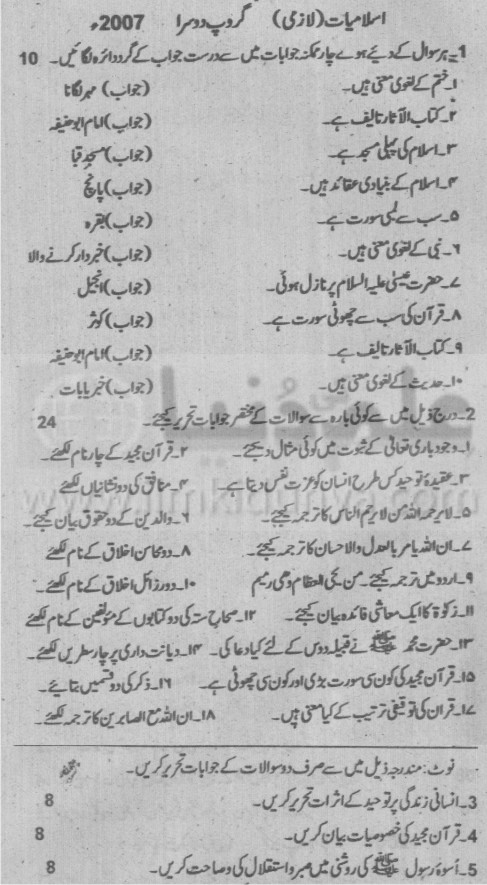 اسلامیات (لازمی) گروپ دوسرا 2007ء
1۔ ہر سوال کے دیئے ہوے چار ممکنہ جوابات میں سے درست جواب کے گرد دائرہ لگائیں۔ 10
۱۔ ختم کے لغوی معنی ہیں۔ (جواب) مہر لگانا
۲۔ کتاب الآثار تالیف ہے۔ (جواب) امام ابو حنیفہ
۳۔ اسلام کی پہلی مسجد ہے۔ (جواب) مسجد قبا
۴۔ اسلام کے بنیادی عقائد ہیں۔ (جواب) پانچ
۵۔ سب سے لمبی سورت ہے۔ (جواب) بقرہ
۶۔ نبی کے لغوی معنی ہیں۔ (جواب) خبردار کرنے والا
۷۔ حضرت عیسیٰ علیہ السلام پر نازل ہوئی۔ (جواب) انجیل
۸۔ قرآن کی سب سے چھوٹی سورت ہے۔ (جواب) کوثر
۹۔ کتاب الآثار تالیف ہے۔ (جواب) امام ابو حنیفہ
۱۰۔ حدیث کے لغوی معنی ہیں۔ (جواب) خبر یا بات
2۔ درج ذیل میں سے کوئی بارہ سے سوالات کے مختصر جوابات تحریر کیجئے۔ 24
۱۔ وجود باری تعالیٰ کے ثبوت میں کوئی مثال دیجئے۔ ۲۔ قرآن مجید کے چار نام لکھئے
۳۔ عقیدۂ توحید کس طرح انسان کو عزت نفس دیتا ہے۔ ۴۔ منافق کی دو نشانیاں لکھئے
۵۔ لا یرحمہ اللہ من لا یرحم الناس کا ترجمہ کیجئے۔ ۶۔ والدین کے دو حقوق بیان کیجئے۔
۷۔ ان اللہ یامر بالعدل والاحسان کا ترجمہ کیجئے۔ ۸۔ دو محاسن اخلاق کے نام لکھئے
۹۔ اردو میں ترجمہ کیجئے۔ من یحی العظام وھی رمیم ۱۰۔ دو رزائل اخلاق کے نام لکھئے
۱۱۔ زکوٰۃ کا ایک معاشی فائدہ بیان کیجئے۔ ۱۲۔ صحاح ستہ کی دو کتابوں کے مؤلفین کے نام لکھئے
۱۳۔ حضرت محمد ﷺ نے قبیلہ دوس کے لئے کیا دعا کی۔ ۱۴۔ دیانت داری پر چار سطریں لکھئے۔
۱۵۔ قرآن مجید کی کون سی سورت بڑی اور کون سی چھوٹی ہے۔ ۱۶۔ ذکر کی دو قسمیں بتائیے۔
۱۷۔ قران کی توقیفی ترتیب کے کیا معنی ہیں۔ ۱۸۔ ان اللہ مع الصابرین کا ترجمہ لکھئے۔
نوٹ: مندرجہ ذیل میں سے صرف دو سوالات کے جوابات تحریر کریں۔
3۔ انسانی زندگی پر توحید کے اثرات تحریر کریں۔ 8
4۔ قرآن مجید کی خصوصیات بیان کریں۔ 8
5۔ اُسوۂ رسول ﷺ کی روشنی میں صبر و استقلال کی وضاحت کریں۔ 8